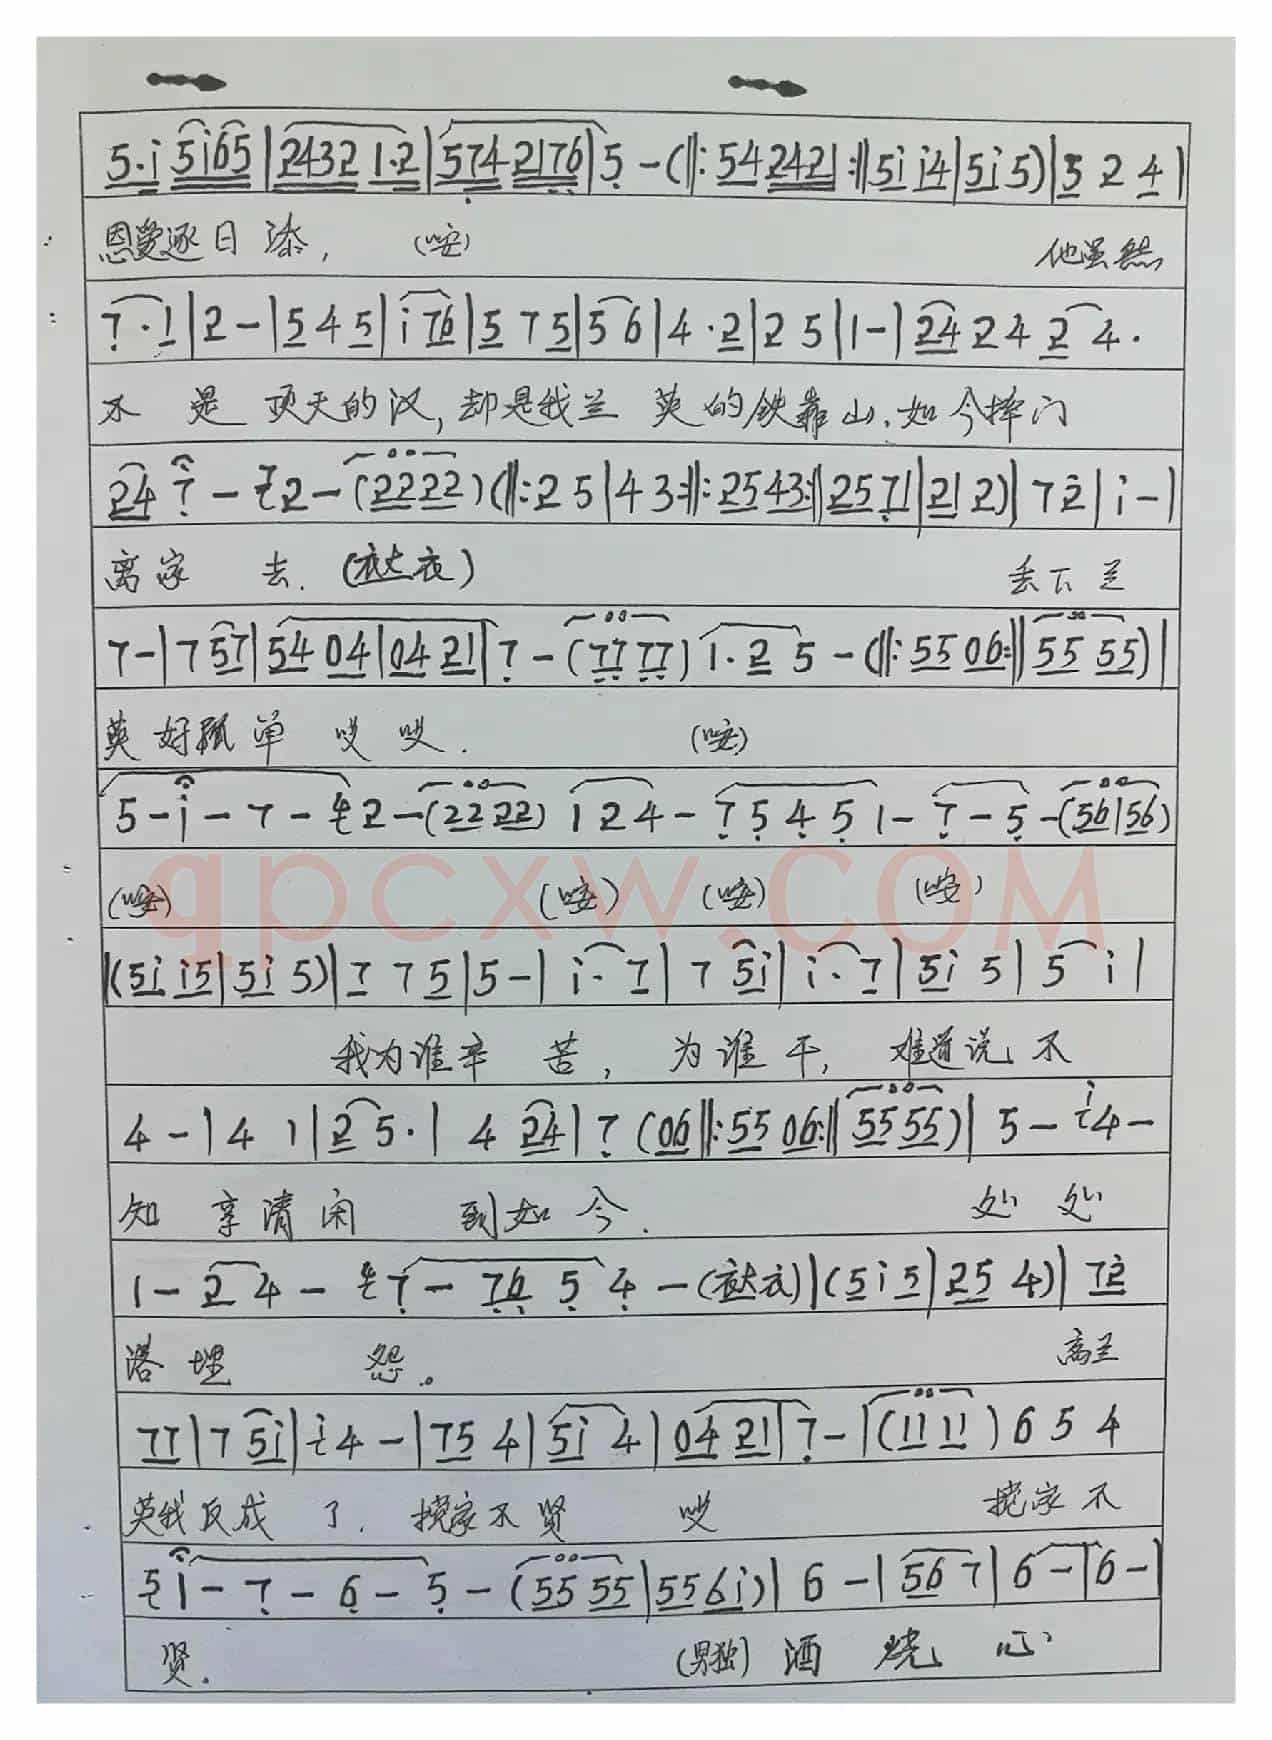 5·i 5i65|2432 1·2|574 2176|5-(‖:54 2421:‖5i i4|5i 5)|3 2 4|
恩爱逐日添，(咹) 他虽然
7·1|2-|5 4 5|i 76|5 7 5|5 6|4·2|2 5|1-|24 2 4 2 4·
不是顶天的汉，却是我兰英的铁靠山.如今摔门
24 7 - 2-(2222)(‖:2 5|4 3:‖:25 43:‖25 71|21 2)|7 2|i-|
离家去.(衣大衣) 丢下兰
7-|7 57|54 04|04 21|7-(77 77) 1·2 5-(‖:55 06:‖55 55)|
英好孤单哎哎. (咹)
5-i-7- 2-(22 22) 1 2 4-7 5 4 5 1-7-5-(56|56)
(咹) (咹) (咹) (咹)
qpcxw.COM
|(5i i5|5i 5)|7 7 5|5-|i·7|7 5i|i·7|5i 5|5 i|
我为谁辛苦，为谁干，难道说不
4-|4 1|2 5·|4 24|7 (06‖:55 06:‖55 55)|5-i4-
知享清闲到如今. 处处
1-2 4- 7-76 5 4-(衣大衣)|(5i5|25 4)|72
落埋怨。 高兰
77|7 5i|i4-|75 4|5i 4|04 21|7-|(11 11) 6 5 4
英我反成了.搅家不贤哎 搅家不
5 1-7-6-5-(55 55|55 6i)|6-|56 7|6-|6-|
贤. (男独) 酒烧心